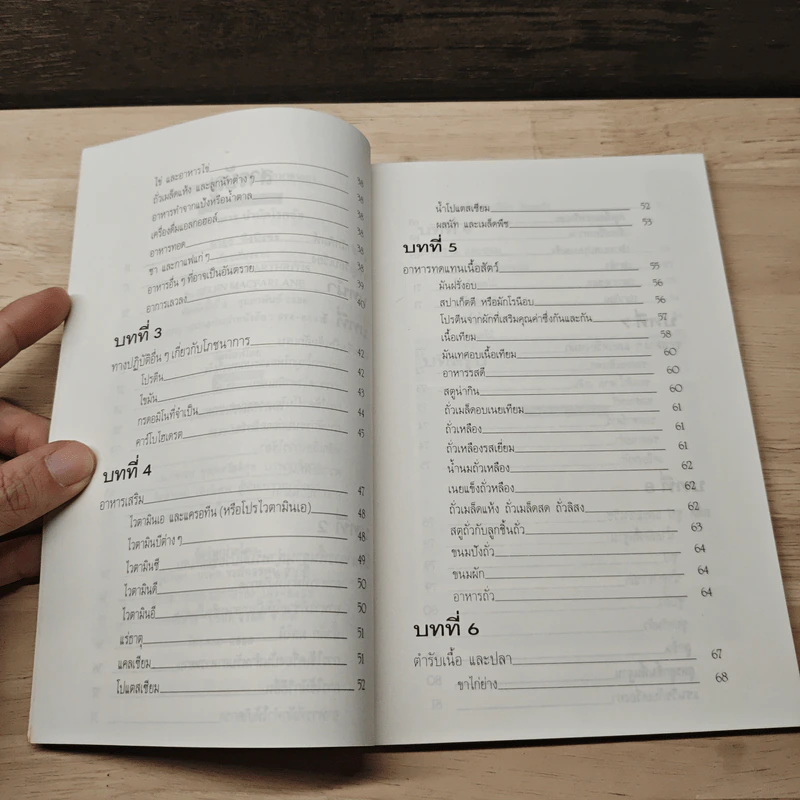 ไข่ และอาหารไข่ 38
ถั่วเมล็ดแห้ง และลูกนัทต่าง ๆ 38
อาหารทำจากแป้งหรือน้ำตาล 38
เครื่องดื่มแอลกอฮอล์ 38
อาหารทอด 38
ชา และกาแฟแก่ ๆ 38
อาหารอื่น ๆ ที่อาจเป็นอันตราย 39
อาการเลวลง 40
บทที่ 3
ทางปฏิบัติอื่น ๆ เกี่ยวกับโภชนาการ 42
โปรตีน 42
ไขมัน 43
กรดอมิโนที่จำเป็น 44
คาร์โบไฮเดรต 45
บทที่ 4
อาหารเสริม 47
ไวตามินเอ และแครอทีน (หรือโปรไวตามินเอ) 48
ไวตามินบีต่าง ๆ 48
ไวตามินซี 49
ไวตามินดี 50
ไวตามินอี 50
แร่ธาตุ 51
แคลเซียม 51
โปแตสเซียม 52
น้ำโปแตสเซียม 52
ผลนัท และเมล็ดพืช 53
บทที่ 5
อาหารทดแทนเนื้อสัตว์ 55
มันฝรั่งอบ 56
สปาเก็ตตี้ หรือมักโรนีอบ 56
โปรตีนจากผักที่เสริมคุณค่าซึ่งกันและกัน 57
เนื้อเทียม 58
มันเทศอบเนื้อเทียม 60
อาหารรสดี 60
สตูน่ากิน 60
ถั่วเมล็ดอบเนยเทียม 61
ถั่วเหลือง 61
ถั่วเหลืองรสเยี่ยม 61
น้ำนมถั่วเหลือง 62
เนยแข็งถั่วเหลือง 62
ถั่วเมล็ดแห้ง ถั่วเมล็ดสด ถั่วลิสง 62
สตูถั่วกับลูกชิ้นถั่ว 63
ขนมปังถั่ว 64
ขนมผัก 64
อาหารถั่ว 64
บทที่ 6
ตำรับเนื้อ และปลา 67
ขาไก่ย่าง 68